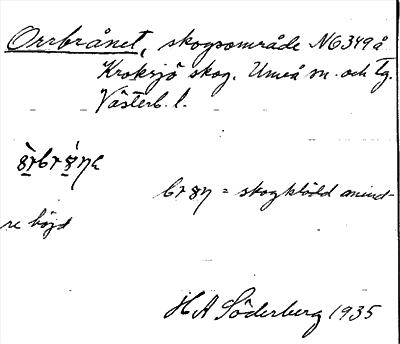 Orrbrånet, skogsområde N6349 å
Kroksjö skog. Umeå sn. och tg.
Västerb. l.
= skogklädd mind-
re höjd
H A Söderberg 1935